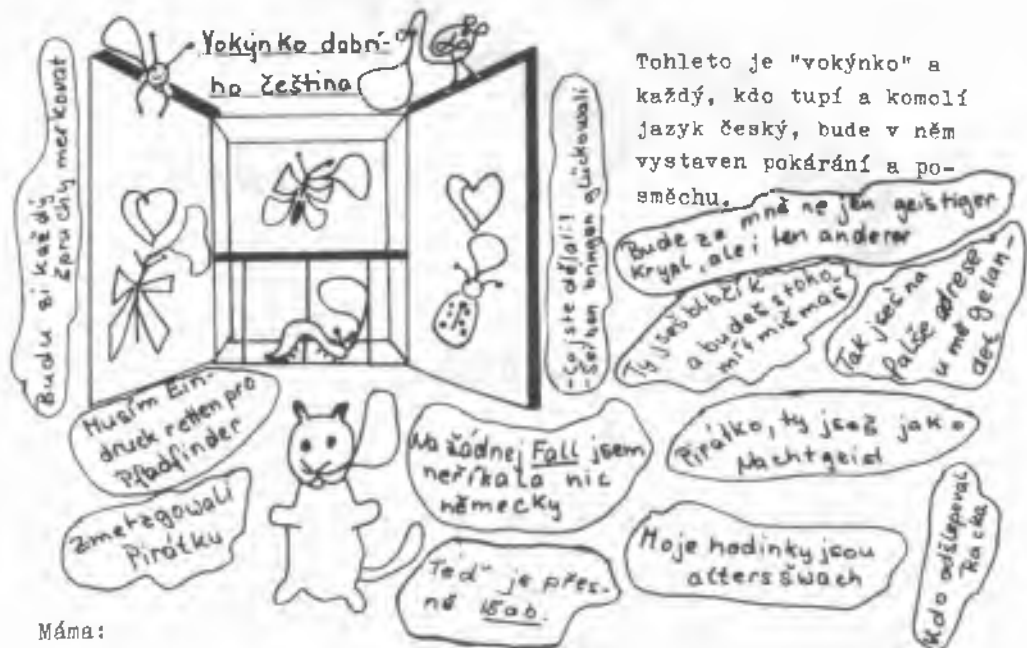 Vokýnko dobrí-
ho čeština
Tohleto je "vokýnko" a
každý, kdo tupí a komolí
jazyk český, bude v něm
vystaven pokárání a po-
směchu.
Budu si každý
špruchy merkovat
-Co jste dělali?
bringen glückowali
Bude ze mně ne jen geistiger
krypl, ale i ten anderer
Ty jseš blbčík
a budeš z toho
mít mišmaš
Tak jseš na
falše adrese
u mě gelan-
det
Musím Ein-
druck retten pro
Pfadfinder
Na žádnej Fall jsem
neříkala nic
německy
Pirátko, ty jseš jako
Nachtgeist
Zmetzgowali
Pirátku
Teď je přes-
ně 15ab.
Moje hodinky jsou
altersšwach
Kdo odšlepoval
Racka
Máma: